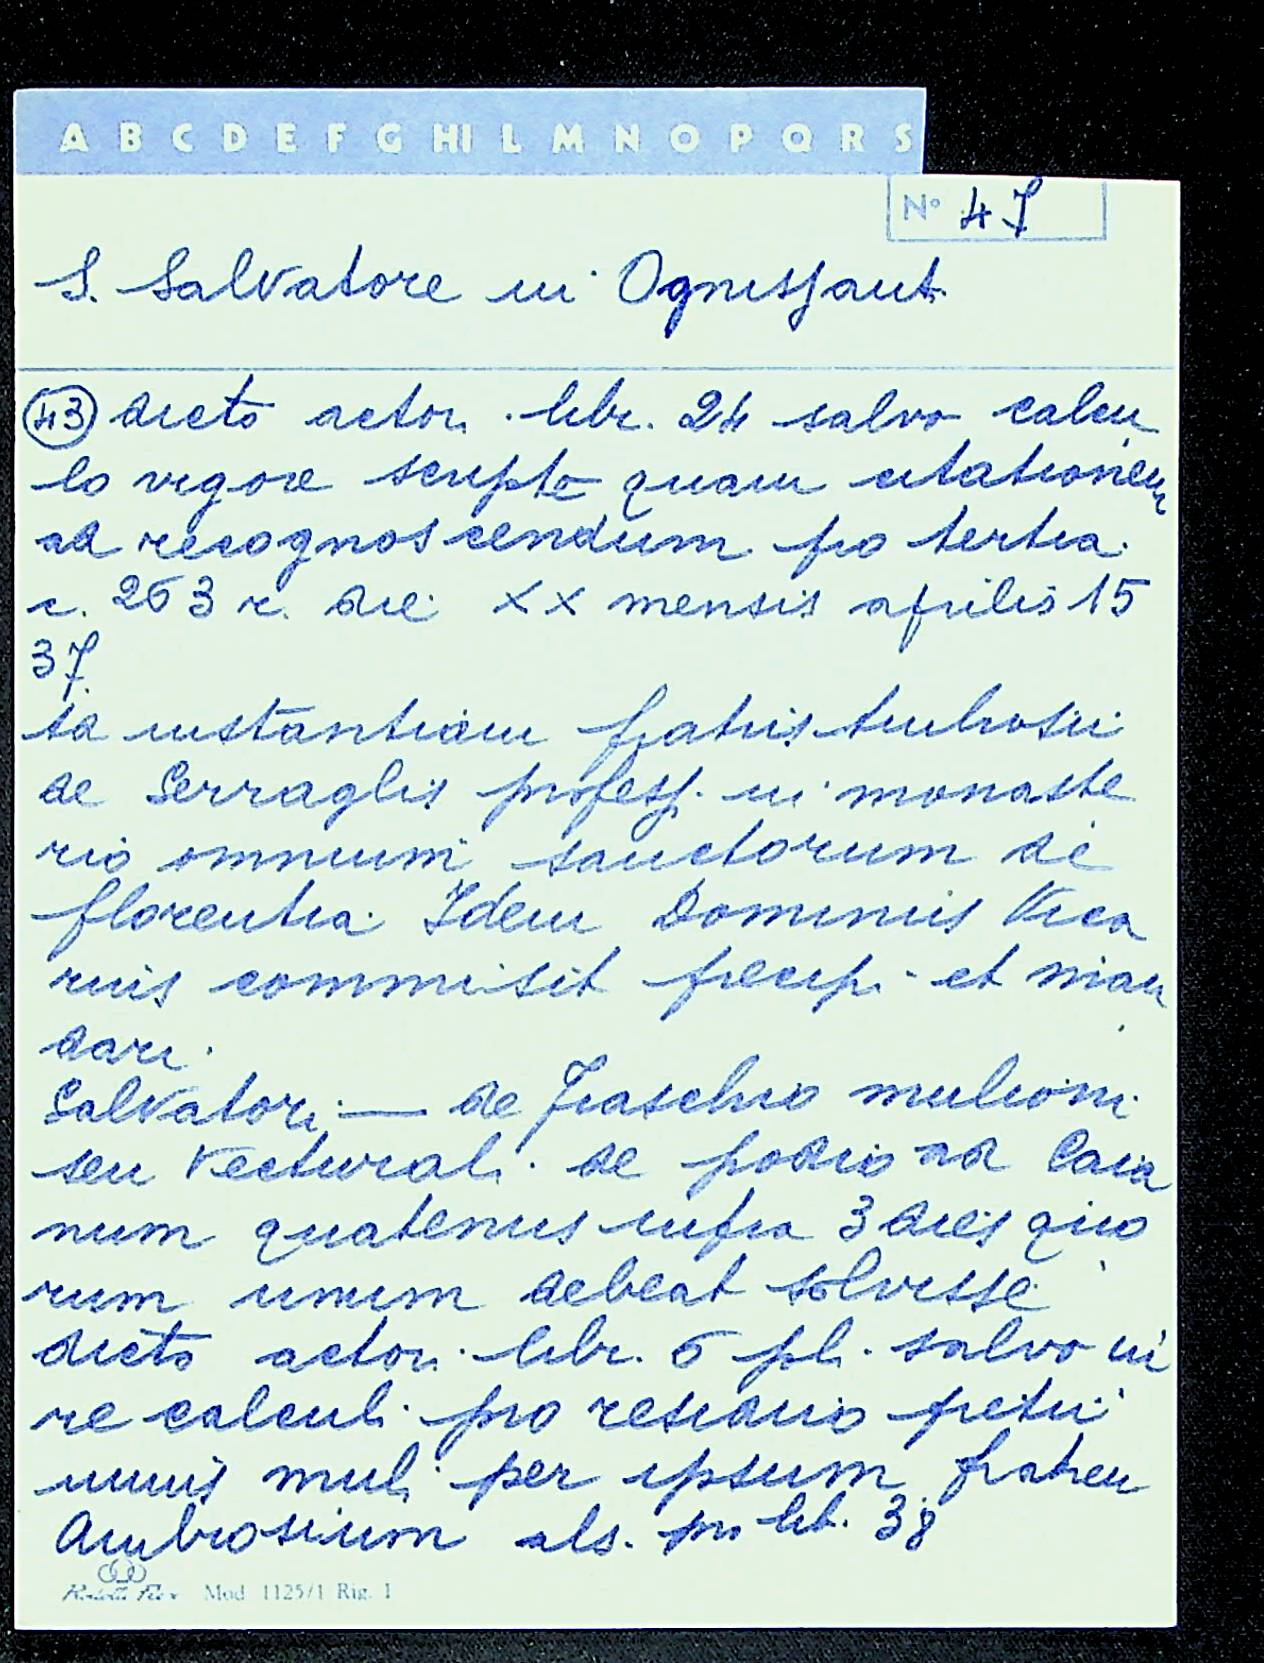 A B C D E F G HI L M N O P Q R S
N° 47
S. Salvatore in Ognissant.
43 dicto actori . libr. 24 salvo calcu
lo vigore scripte quam citationem
ad recognoscendum pro tertia.
c. 263 r. die XX mensis aprilis 15
37.
ad instantiam fratris Ambrosii
de Serraglis profess. in monaste
rio omnium sanctorum de
florentia. Idem Dominus Vica
rius commisit precip. et man
dari.
Salvatori — de Fraschio mulioni
seu Vecturali. de podio ad Caia
num quatenus infra 3 dies quo
rum unum debeat solvisse
dicto actori. libr. 6 pl. salvo iu
re calculi. pro residuo pretii
unius muli per ipsum fratrem
Ambrosium als. pro lib. 38
Mod 1125/1 Rig. 1